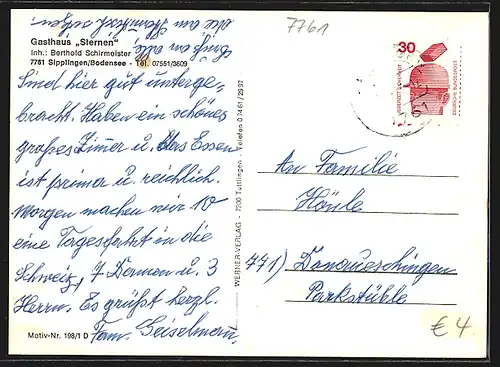 7761
Grüß an alle,
die am Stammtisch
Gasthaus „Sternen"
Inh.: Berthold Schirmeister
7761 Sipplingen/Bodensee - Tel. 07551/3609
Sind hier gut unterge-
bracht. Haben ein schönes
großes Zimer u. das Essen
ist prima u. reichlich.
Morgen machen wir 10
eine Tagesfahrt in die
Schweiz, 7 Damen u. 3
Herrn. Es grüßt herzl.
Fam. Geiselmann.
Motiv-Nr. 198/1 D
WERNER-VERLAG - 7200 Tuttlingen - Telefon 0 74 61 / 29 97
30
JEDERZEIT SICHERHEIT
DEUTSCHE BUNDESPOST
An Familie
Hönle
771) Donaueschingen
Parkstüble
€ 4.